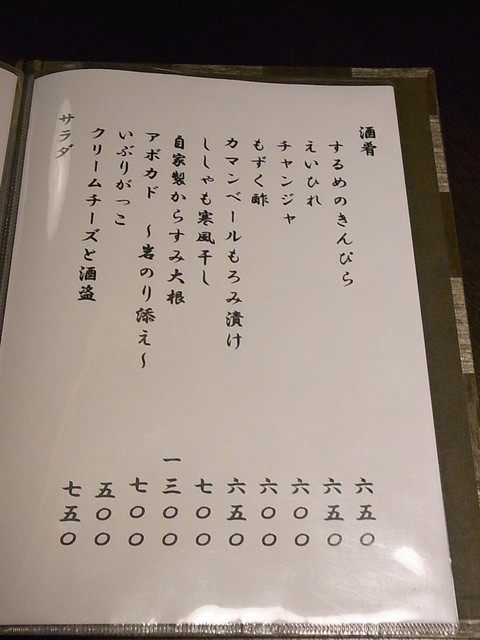 酒肴
するめのきんぴら 六五〇
えいひれ 六五〇
チャンジャ 六〇〇
もずく酢 六〇〇
カマンベールもろみ漬け 六五〇
ししゃも寒風干し 七〇〇
自家製からすみ大根 一三〇〇
アボカド ～岩のり添え～ 七〇〇
いぶりがっこ 五〇〇
クリームチーズと酒盗 七五〇
サラダ